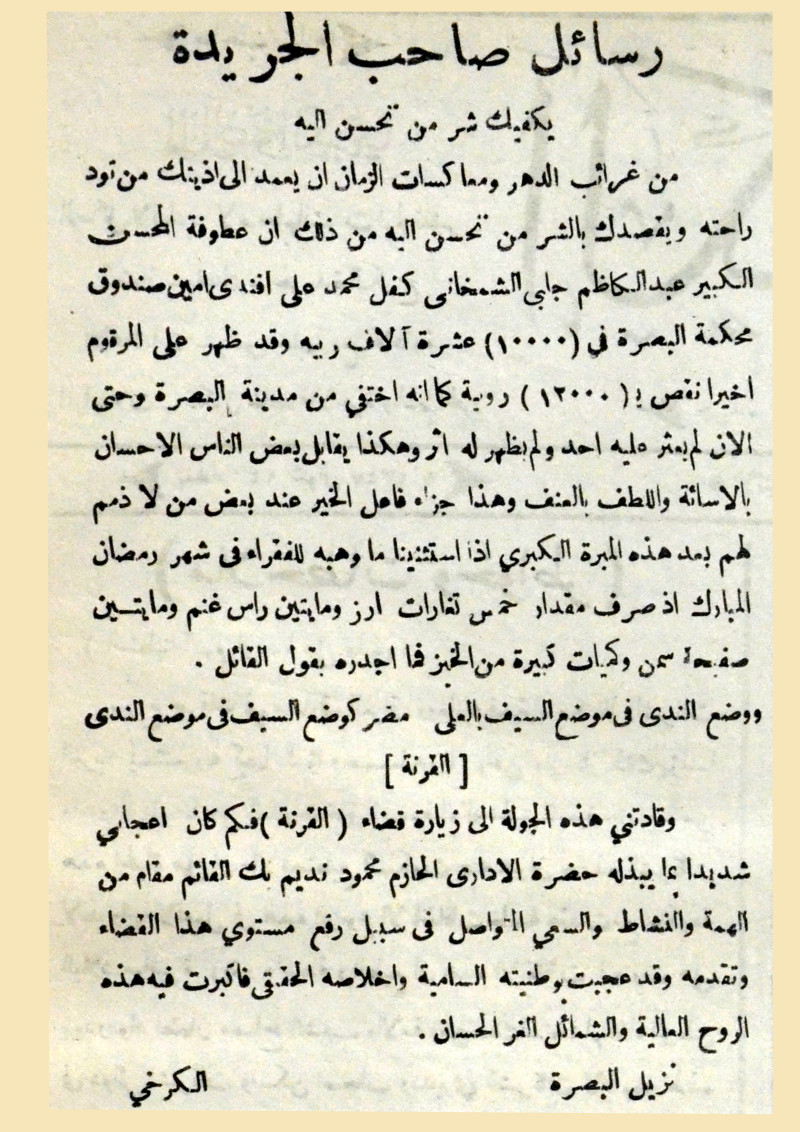 رسائل صاحب الجريدة
يكفيك شر من تحسن اليه
من غرائب الدهر ومعاكسات الزمان ان يعمد الى اذيتك من تود
راحته ويقصدك بالشر من تحسن اليه من ذلك ان عطوفة المحسن
الكبير عبدالكاظم جلبي الشمخانى كفل محمد على افندى امين صندوق
محكمة البصرة في (١٠٠٠٠) عشرة آلاف ربيه وقد ظهر على المرقوم
اخيرا نقص بـ( ١٢٠٠٠ ) روبية كما انه اختفي من مدينة البصرة وحتى
الان لم يعثر عليه احد ولم يظهر له اثر وهكذا يقابل بعض الناس الاحسان
بالاسائة واللطف بالعنف وهذا جزاء فاعل الخير عند بعض من لا ذمم
لهم بعد هذه المبرة الكبري اذا استثنينا ما وهبه للفقراء فى شهر رمضان
المبارك اذ صرف مقدار خمس تغارات ارز ومايتين راس غنم ومايتـين
صفيحة سمن وكميات كبيرة من الخبز فما اجدره بقول القائل .
ووضع الندى فى موضع السيف بالعلى مضر كوضع السيف فى موضع الندى
[ القرنة ]
وقادتني هذه الجولة الى زيارة قضاء ( القرنة ) فكم كان اعجابي
شديدا بما يبذله حضرة الادارى الحازم محمود نديم بك القائم مقام من
الهمة والنشاط والسعي المواصل فى سبيل رفع مستوي هذا القضاء
وتقدمه وقد عجبت بوطنيته السامية واخلاصه الحقيقى فاكبرت فيه هذه
الروح العالية والشمائل الغر الحسان .
نزيل البصرة الكرخي